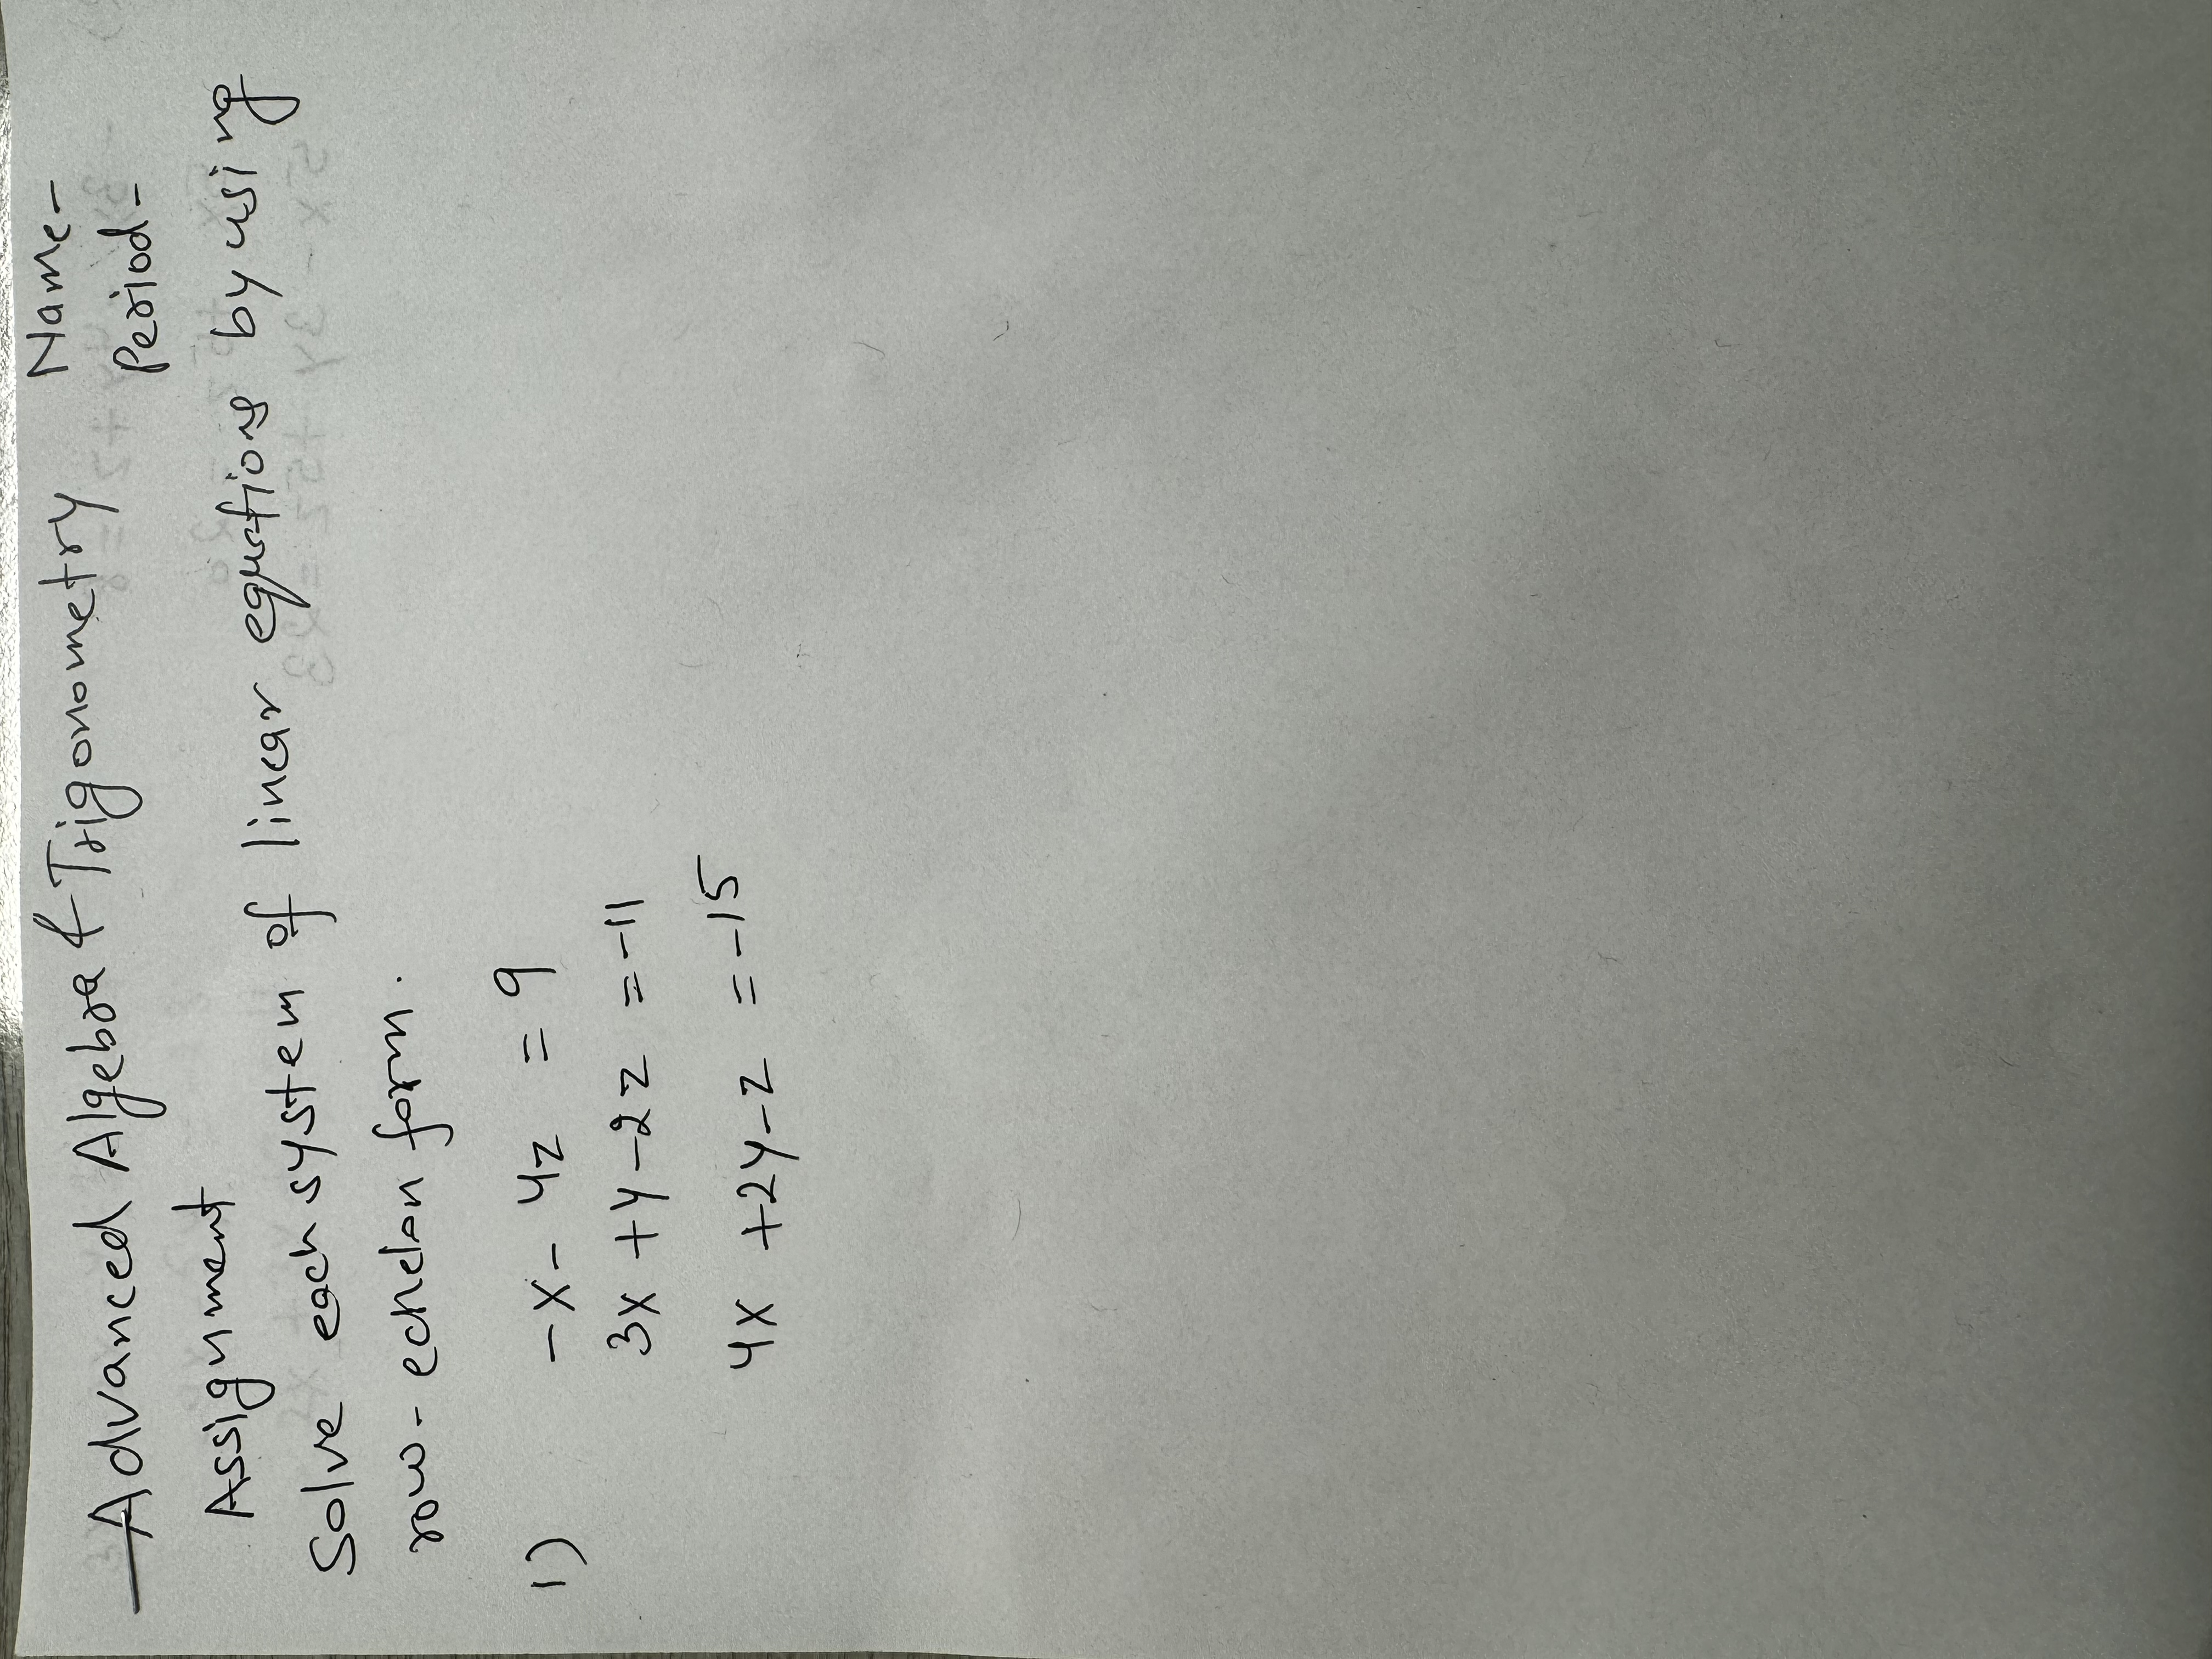 Advanced Algebra & Trigonometry Name-
Assignment Period-
Solve each system of linear equations by using
row-echelon form.
1) -x - 4z = 9
3x + y - 2z = -11
4x + 2y - z = -15